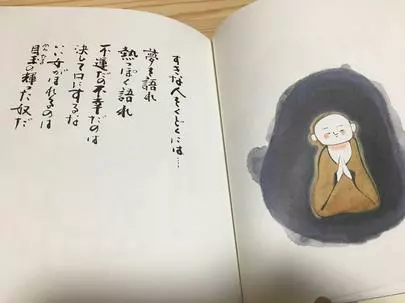 すきな人をくどくには…
夢を語れ
熱っぽく語れ
不運だの不幸だのは
決して口にするな
いい女がほれるのは
目玉の輝った奴だ